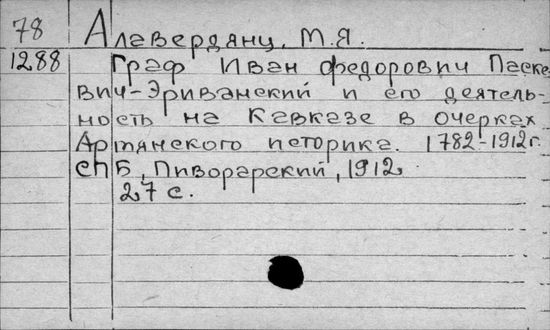 78
Алавердянц, М.Я.
1288
Граф Иван Федорович Паске
вич-Эриванский и его деятель-
ность на Кавказе в очерках
Армянского историка. 1782-1912г.
СПБ, Пивоварский, 1912
27 с.